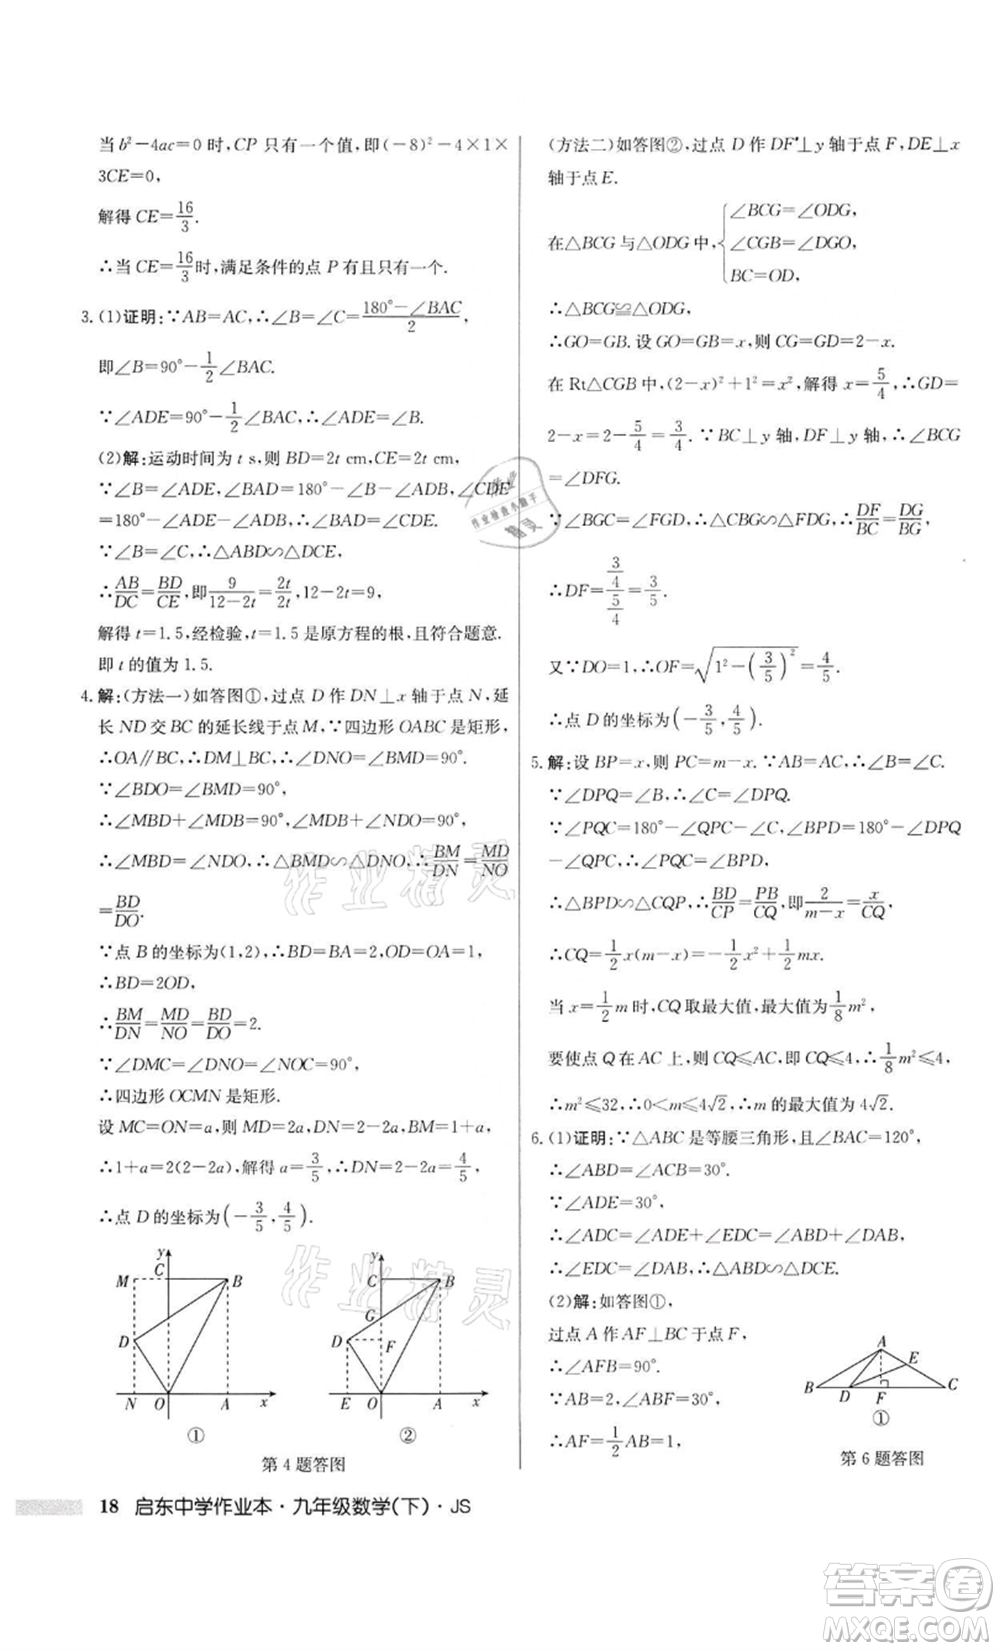 当 b²-4ac=0 时,CP 只有一个值,即(-8)²-4×1×
3CE=0,
解得 CE=16/3.
∴当 CE=16/3时,满足条件的点 P 有且只有一个.
3. (1)证明:∵AB=AC,∴∠B=∠C=(180°-∠BAC)/2,
即∠B=90°-1/2∠BAC.
∵∠ADE=90°-1/2∠BAC,∴∠B=∠ADE.
(2)解:运动时间为 t s,则 BD=2t cm,CE=2t cm,
∵∠B=∠ADE,∠BAD=180°-∠B-∠ADB,∠CDE
=180°-∠ADE-∠ADB,∴∠BAD=∠CDE.
∵∠B=∠C,∴△ABD∽△DCE,
∴AB/DC=BD/CE,即9/(12-2t)=2t/2t,∴12-2t=9,
解得 t=1.5,经检验,t=1.5 是原方程的根,且符合题意.
即 t 的值为 1.5.
4. 解:(方法一)如答图①,过点 D 作 DN⊥x 轴于点 N,延
长 ND 交 BC 的延长线于点 M,∵四边形 OABC 是矩形,
∴OA∥BC,∴DM⊥BC,∴∠BMD=∠DNO=90°.
∵∠BDO=∠BMD=90°,
∴∠MBD+∠MDB=90°,∠MDB+∠NDO=90°,
∴∠MBD=∠NDO,∴△BMD∽△DNO,∴BM/DN=MD/NO
=BD/DO.
∵点 B 的坐标为(1,2),∴BD=BA=2,OD=OA=1,
∴BD=2OD,
∴BM/DN=MD/NO=BD/DO=2.
∵∠DMC=∠DNO=∠NOC=90°,
∴四边形 OCMN 是矩形.
设 MC=ON=a,则 MD=2a,BM=BC+MC=1+a,
∴1+a=2(2-2a),解得 a=3/5,∴DN=(1+a)/2=4/5,
∴点 D 的坐标为(-3/5,4/5).
y
M C B
D
N O A x
①
y
C B
G
D F
E O A x
②
第 4 题答图
(方法二)如答图②,过点 D 作 DF⊥y 轴于点 F,DE⊥x
轴于点 E.
在△BCG 与△ODG 中,{∠BCG=∠ODG,
∠CGB=∠DGO,
BC=OD,
∴△BCG≌△ODG,
∴GO=GB. 设 GO=GB=x,则 CG=GD=2-x.
在 Rt△CGB 中,(2-x)²+1²=x²,解得 x=5/4,∴GD=
2-x=2-5/4=3/4. ∵BC⊥y 轴,DF⊥y 轴,∴∠BCG
=∠DFG.
∵∠BGC=∠FGD,∴△CBG∽△FDG,∴DF/BC=DG/BG,
∴DF=(3/4)/(5/4)=3/5.
又∵DO=1,∴OF=√(1²-(3/5)²)=4/5.
∴点 D 的坐标为(-3/5,4/5).
5. 解:设 BP=x,则 PC=m-x. ∵AB=AC,∴∠B=∠C.
∵∠DPQ=∠B,∴∠C=∠DPQ.
∵∠PQC=180°-∠QPC-∠C,∠BPD=180°-∠DPQ
-∠QPC,∴∠PQC=∠BPD,
∴△BPD∽△CQP,∴BD/CP=PB/CQ,即2/(m-x)=x/CQ,
∴CQ=1/2x(m-x)=-1/2x²+1/2mx.
当 x=1/2m 时,CQ 取最大值,最大值为1/8m²,
要使点 Q 在 AC 上,则 CQ≤AC,即 CQ≤4,∴1/8m²≤4,
∴m²≤32,∴0<m≤4√2,∴m 的最大值为 4√2.
6. (1)证明:∵△ABC 是等腰三角形,且∠BAC=120°,
∴∠ABD=∠ACB=30°.
∵∠ADE=30°,
∴∠ABD=∠ADE=30°.
∵∠ADC=∠ADE+∠EDC=∠ABD+∠DAB,
∴∠EDC=∠DAB,∴△ABD∽△DCE.
(2)解:如答图①,
过点 A 作 AF⊥BC 于点 F,
∴∠AFB=90°.
∵AB=2,∠ABF=30°,
∴AF=1/2AB=1,
A
E
B D F C
①
第 6 题答图
18 启东中学作业本·九年级数学(下)·JS
作业精灵
作业精灵
作业检查小助手
答案卷
MXQE.COM